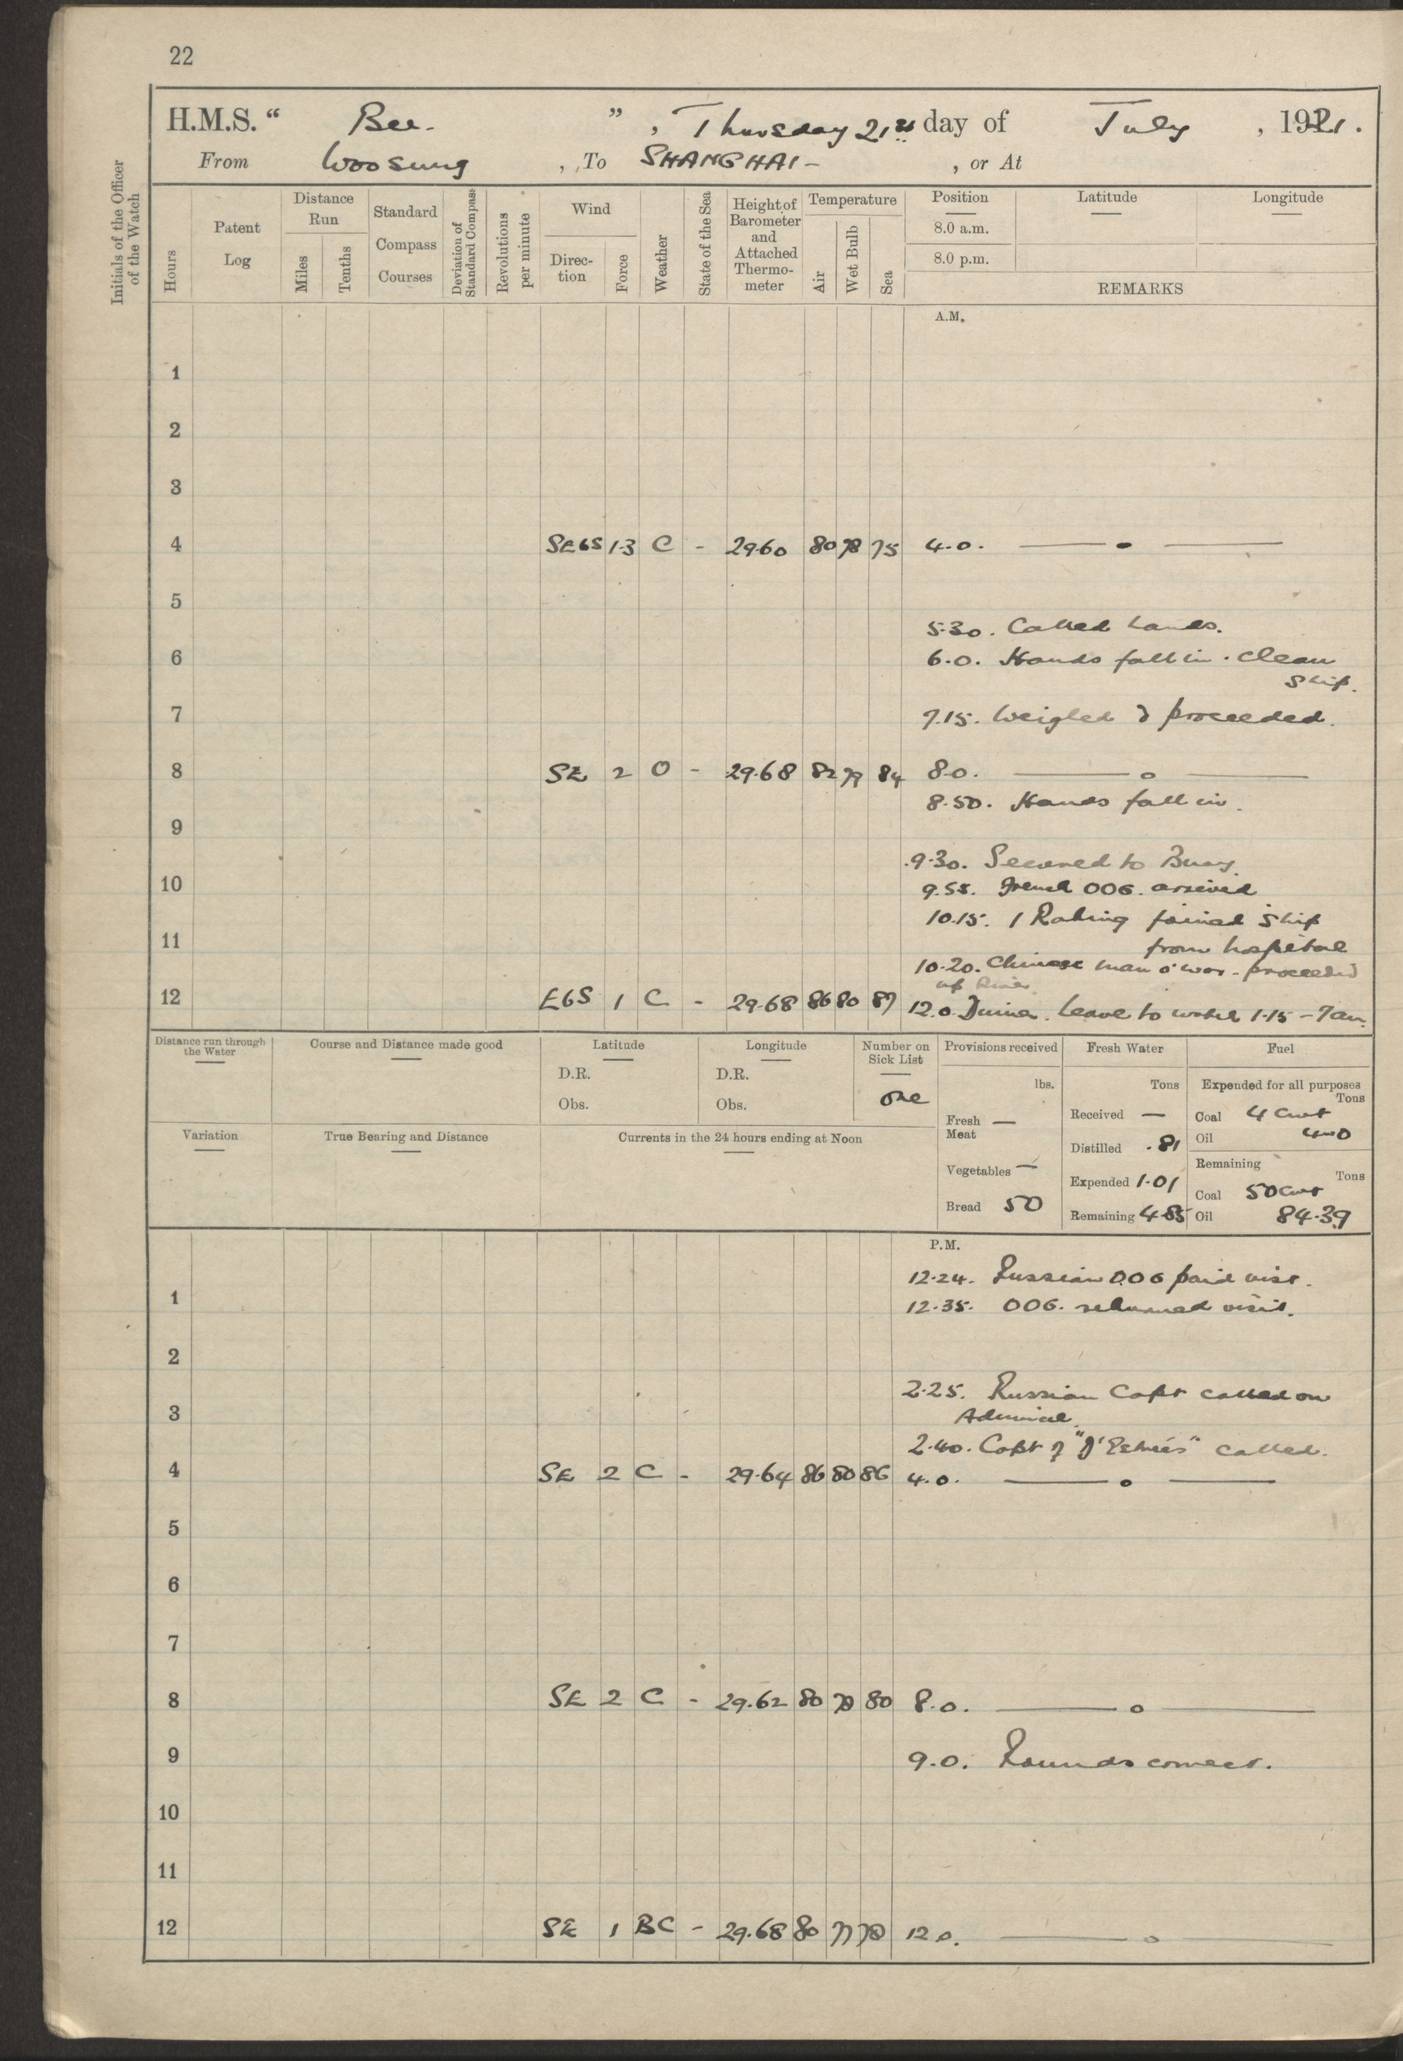 22
H.M.S. “ Bee. ” , Thursday 21st day of July , 1921.
From Woosung , To SHANGHAI - , or At
Initials of the Officer of the Watch
Hours
Patent Log
Distance Run
Miles
Tenths
Standard Compass Courses
Deviation of Standard Compass
Revolutions per minute
Wind
Direction
Force
Weather
State of the Sea
Height of Barometer and Attached Thermometer
Temperature
Air
Wet Bulb
Sea
Position
8.0 a.m.
8.0 p.m.
Latitude
Longitude
REMARKS
A.M.
1
2
3
4 SEbS 1-3 C - 29.60 80 78 75 4.0. — • —
5
5.30. Called hands.
6 6.0. Hands fall in. Clean
Ship.
7 7.15. Weighed & proceeded.
8 SE 2 O - 29.68 82 79 84 8.0. — o —
8.50. Hands fall in.
9
9.30. Secured to Buoy.
10 9.55. French OOG. arrived
10.15. 1 Rating joined ship
11 from hospital
10.20. Chinese man o' war - proceeded
up River
12 EbS 1 C - 29.68 86 80 87 12.0. Dinner. Leave to watch 1.15 - 7am.
Distance run through the Water
Course and Distance made good
Latitude
D.R.
Obs.
Longitude
D.R.
Obs.
Number on Sick List
one
Provisions received
lbs.
Fresh Meat —
Vegetables —
Bread 50
Fresh Water
Tons
Received —
Distilled .81
Expended 1.01
Remaining 4.85
Fuel
Expended for all purposes
Tons
Coal 4 cwt
Oil
Remaining
Tons
Coal 50 cwt
Oil 84.39
Variation
True Bearing and Distance
Currents in the 24 hours ending at Noon
P.M.
12.24. Russian OOG paid visit.
1 12.35. OOG. returned visit.
2
2.25. Russian Capt called on
3 Admiral.
2.40. Capt of "D'Estrées" called.
4 SE 2 C - 29.64 86 80 86 4.0. — o —
5
6
7
8 SE 2 C - 29.62 80 79 80 8.0. — o —
9 9.0. Rounds correct.
10
11
12 SE 1 BC - 29.68 80 77 78 12.0. — o —